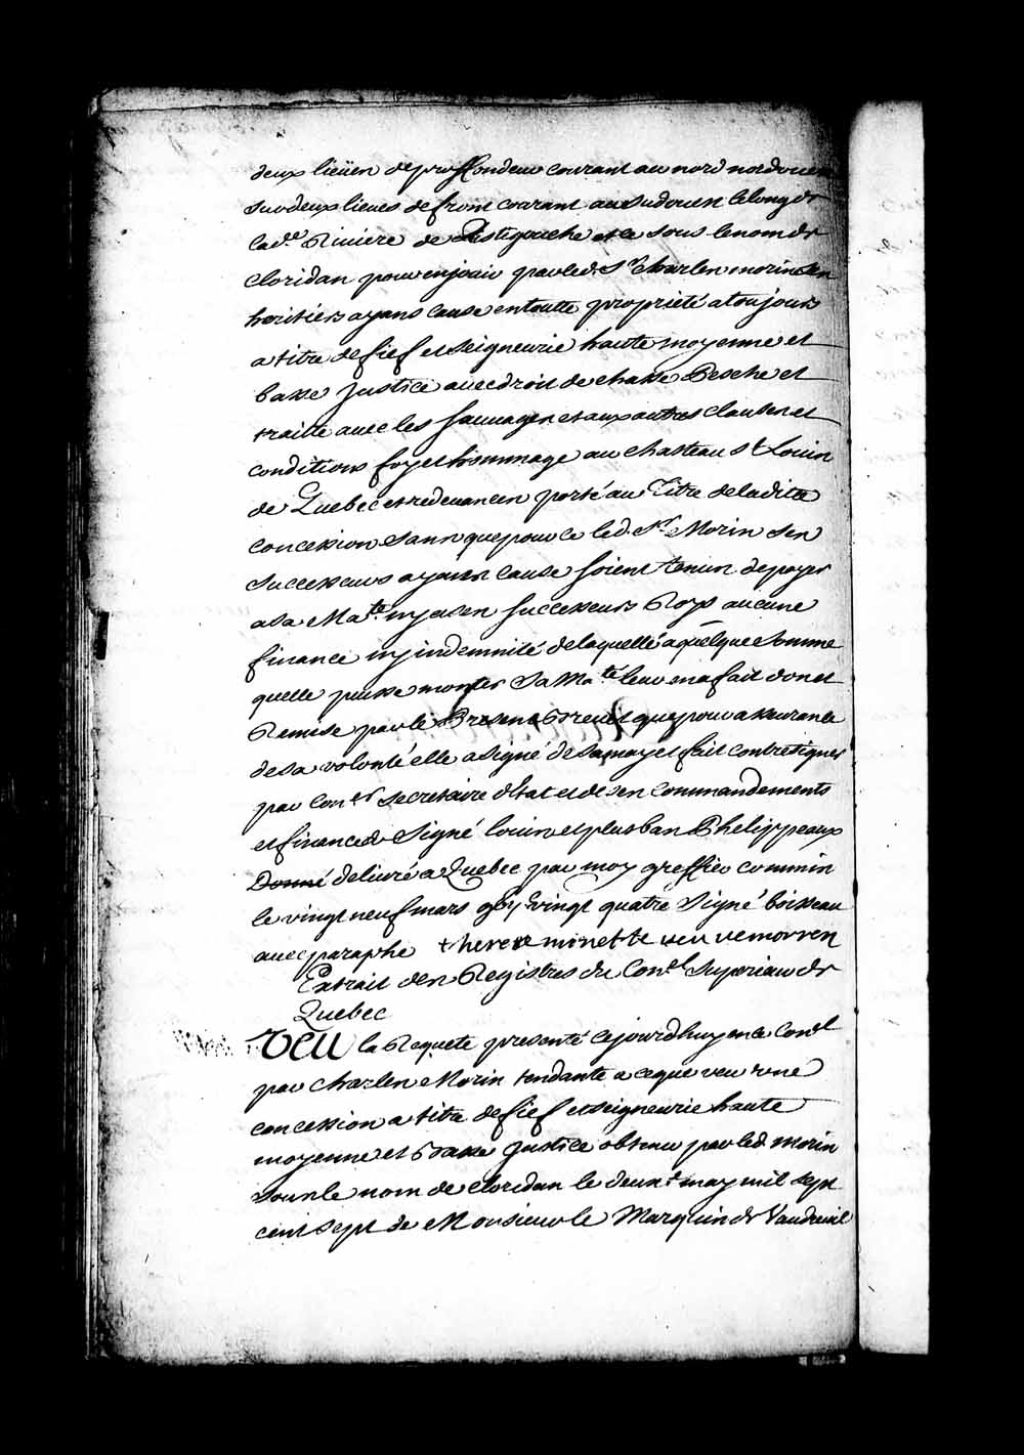 deux lieües de proffondeur courant au nord nordouest
sur deux lieues de front courant au sudouest le long de
lad.e Riviere de Ristigouche et ce sous le nom de
Cloridan pour en jouir par led. Sr Charles morin ses
heritiers ayans cause en toutte proprieté a toujours
a titre de fief et seigneurie haute moyenne et
basse justice avec droit de chasse Pesche et
traitte avec les sauvages et aux autres clauses et
conditions foy et hommage au chasteau St Louis
de Quebec et redevances porté au Titre de ladite
concession sans que pour ce led. Sr Morin ses
successeurs ayans cause soient tenus de payer
a sa Mate ny a ses successeurs Roys aucune
finance ny indemnité de laquelle a quelque somme
quelle puisse monter Sa Maté leur en a fait don et
Remise par le Present Brevet que pour assurance
de sa volonté elle a signé de sa main et fait contresigner
par Coner secretaire d'Etat et de ses commandements
et finances Signé louis et plus bas Phelippeaux
Donné delivré a Quebec par moy greffier commis
le vingt neuf mars vingt quatre Signé boisseau
avec paraphe therese minette veu ve morren
Extrait des Registres du Conel Superieur de
Quebec
VEU la Requete presenté cejourdhuy en ce Conel
par Charles Morin tendante a ce que veu une
concession a titre de fief et seigneurie haute
moyenne et Basse justice obtenu par led. morin
sous le nom de Cloridan le deux.e may mil sept
cent sept de Monsieur le Marquis de Vaudreuil